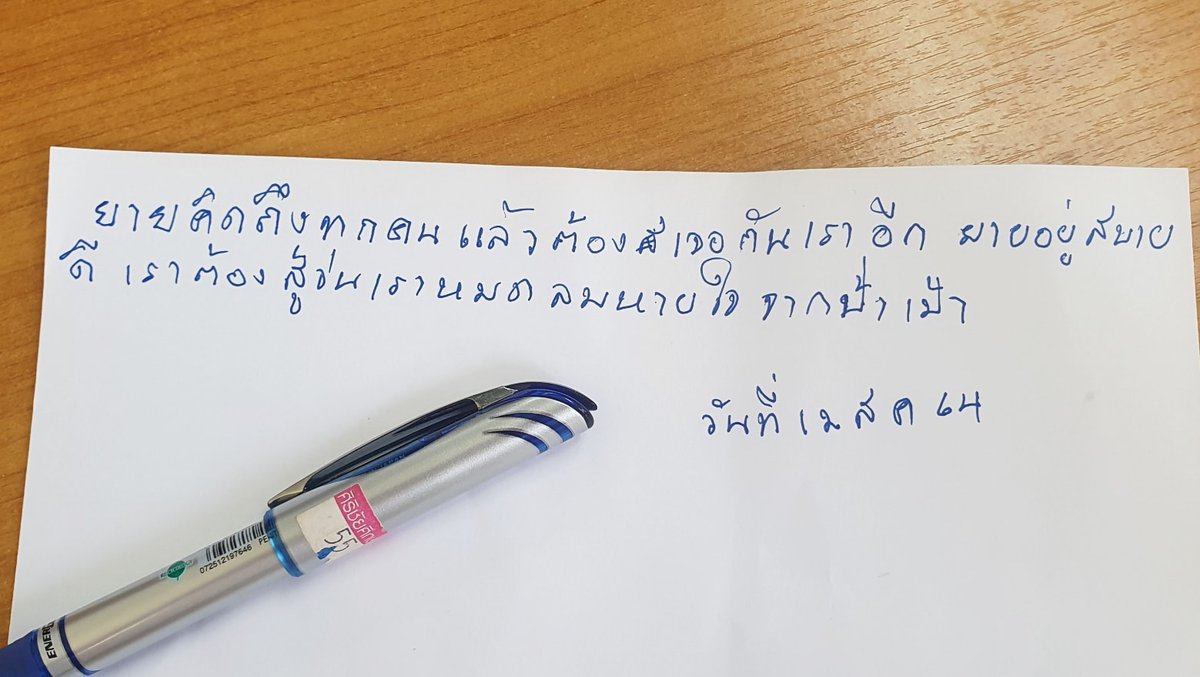 ยายคิดถึงทุกคน แล้วต้อง เจอกันเราอีก ยายอยู่สบาย
ดี เราต้องสู้จนเราหมดลมหายใจ จากป้าเป้า
วันที่ ส ค 64
ศิริชัยศึก
55
072512197646 PE
ENER